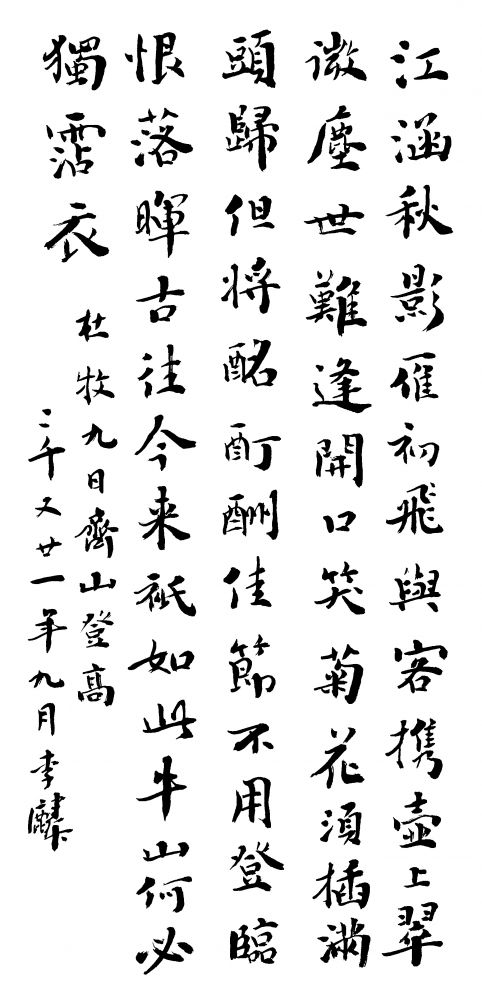 江涵秋影雁初飛與客携壺上翠
微塵世難逢開口笑菊花須插滿
頭歸但將酩酊酬佳節不用登臨
恨落暉古往今来祇如此牛山何必
獨霑衣
杜牧九日齊山登高
二千又廿一年九月李麟